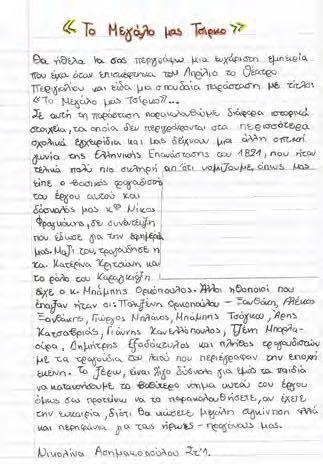 « Το Μεγάλο μας Τσίρκο »
Θα ήθελα να σας περιγράψω μια ευχάριστη εμπειρία
που είχα όταν επισκέφτηκα τον Απρίλιο το Θέατρο
και είδα μια σπουδαία παράσταση με τίτλο
«Το Μεγάλο μας Τσίρκο»...
Σε αυτή τη παράσταση παρακολουθούμε διάφορα ιστορικά
στοιχεία, τα οποία δεν περιγράφονται στα περισσότερα
σχολικά εγχειρίδια και μας δείχνουν μια άλλη οπτική
γωνία της Ελληνικής Επανάστασης του 1821, που ήταν
τελικά πολύ πιο σκληρή απ' ότι νομίζουμε, όπως μας
είπε ο βασικός τραγουδιστής
του έργου αυτού και
δάσκαλός μας κος Νίκος
σε συνέντευξη
που έδωσε για την εφημερίδα
μας. Μαζί του, τραγούδησε η
κα. Κατερίνα και
το ρόλο του Καραγκιόζη
είχε ο κ. Μπάμπης Οριόπουλος. Άλλοι ηθοποιοί που
έπαιξαν ήταν οι: Πολυξένη Οριοπούλου - Ξανθάκη, Αλέκος
Ξανθάκης, Γιώργος Νταλιος, Μπάμπης Τσόγκας, Άρης
Κατσαβριάς, Γιάννης Κανελλόπουλος, Τζένη
Δημήτρης Εξαδάκτυλος και πλήθος τραγουδιστών
με τα τραγούδια του λαού που περιέγραφαν την εποχή
εκείνη. Το ξέρω, είναι λίγο δύσκολο για εμάς τα παιδιά
να κατανοήσουμε το βαθύτερο νόημα αυτού του έργου
όμως σας προτείνω να το παρακολουθήσετε, αν έχετε
την ευκαιρία, διότι θα νιώσετε μεγάλη συγκίνηση αλλά
και περηφάνια για τους ήρωες - προγόνους μας.
Νικολίνα Ασημακοπούλου Στ'1.